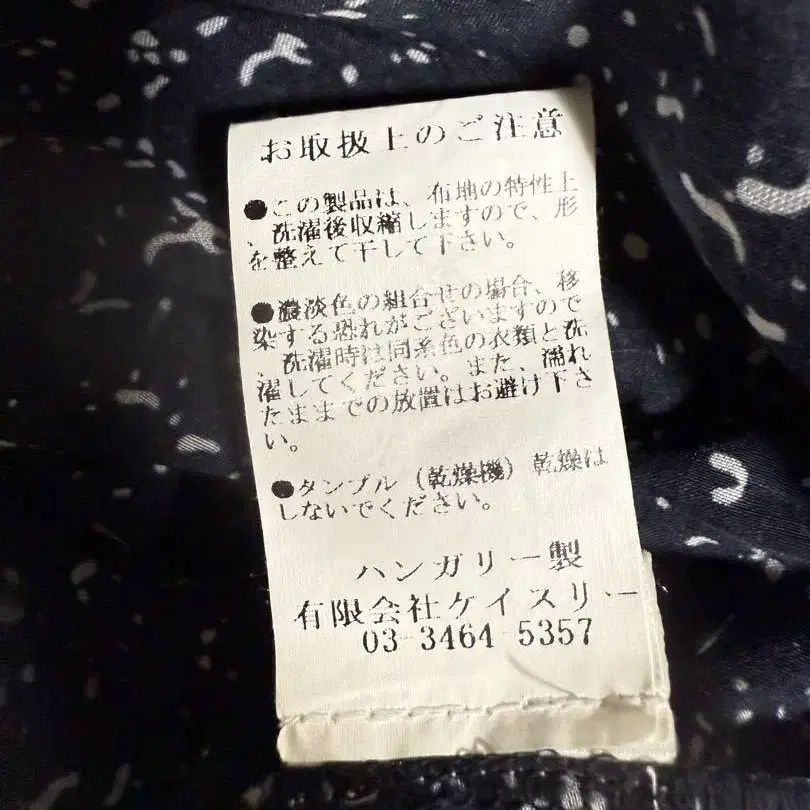 お取扱上のご注意
●この製品は、布地の特性上
、洗濯後収縮しますので、形
を整えて干して下さい。
●濃淡色の組合せの場合、移
染する恐れがございますので
、洗濯時は同系色の衣類と洗
濯してください。また、濡れ
たままでの放置はお避け下さ
い。
●タンブル（乾燥機）乾燥は
しないでください。
ハンガリー製
有限会社ケイスリー
03-3464-5357